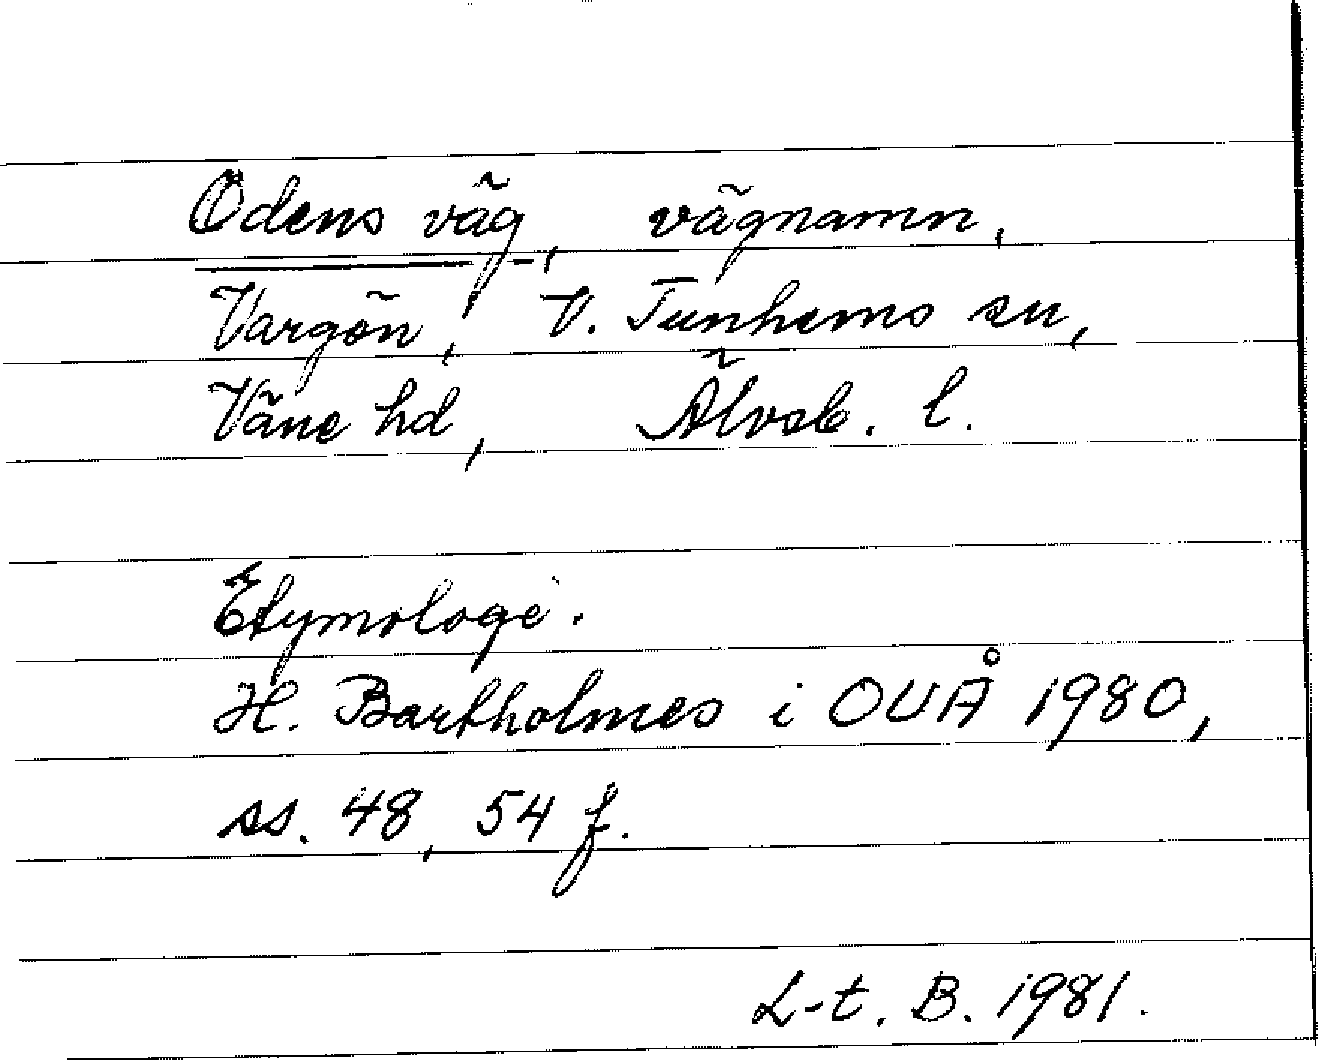 Odens väg, vägnamn,
Vargön, V. Tunhems sn,
Väne hd, Älvsb. l.
Etymologi.
H. Bartholmes i OUÅ 1980,
ss. 48, 54 f.
L-t. B. 1981.